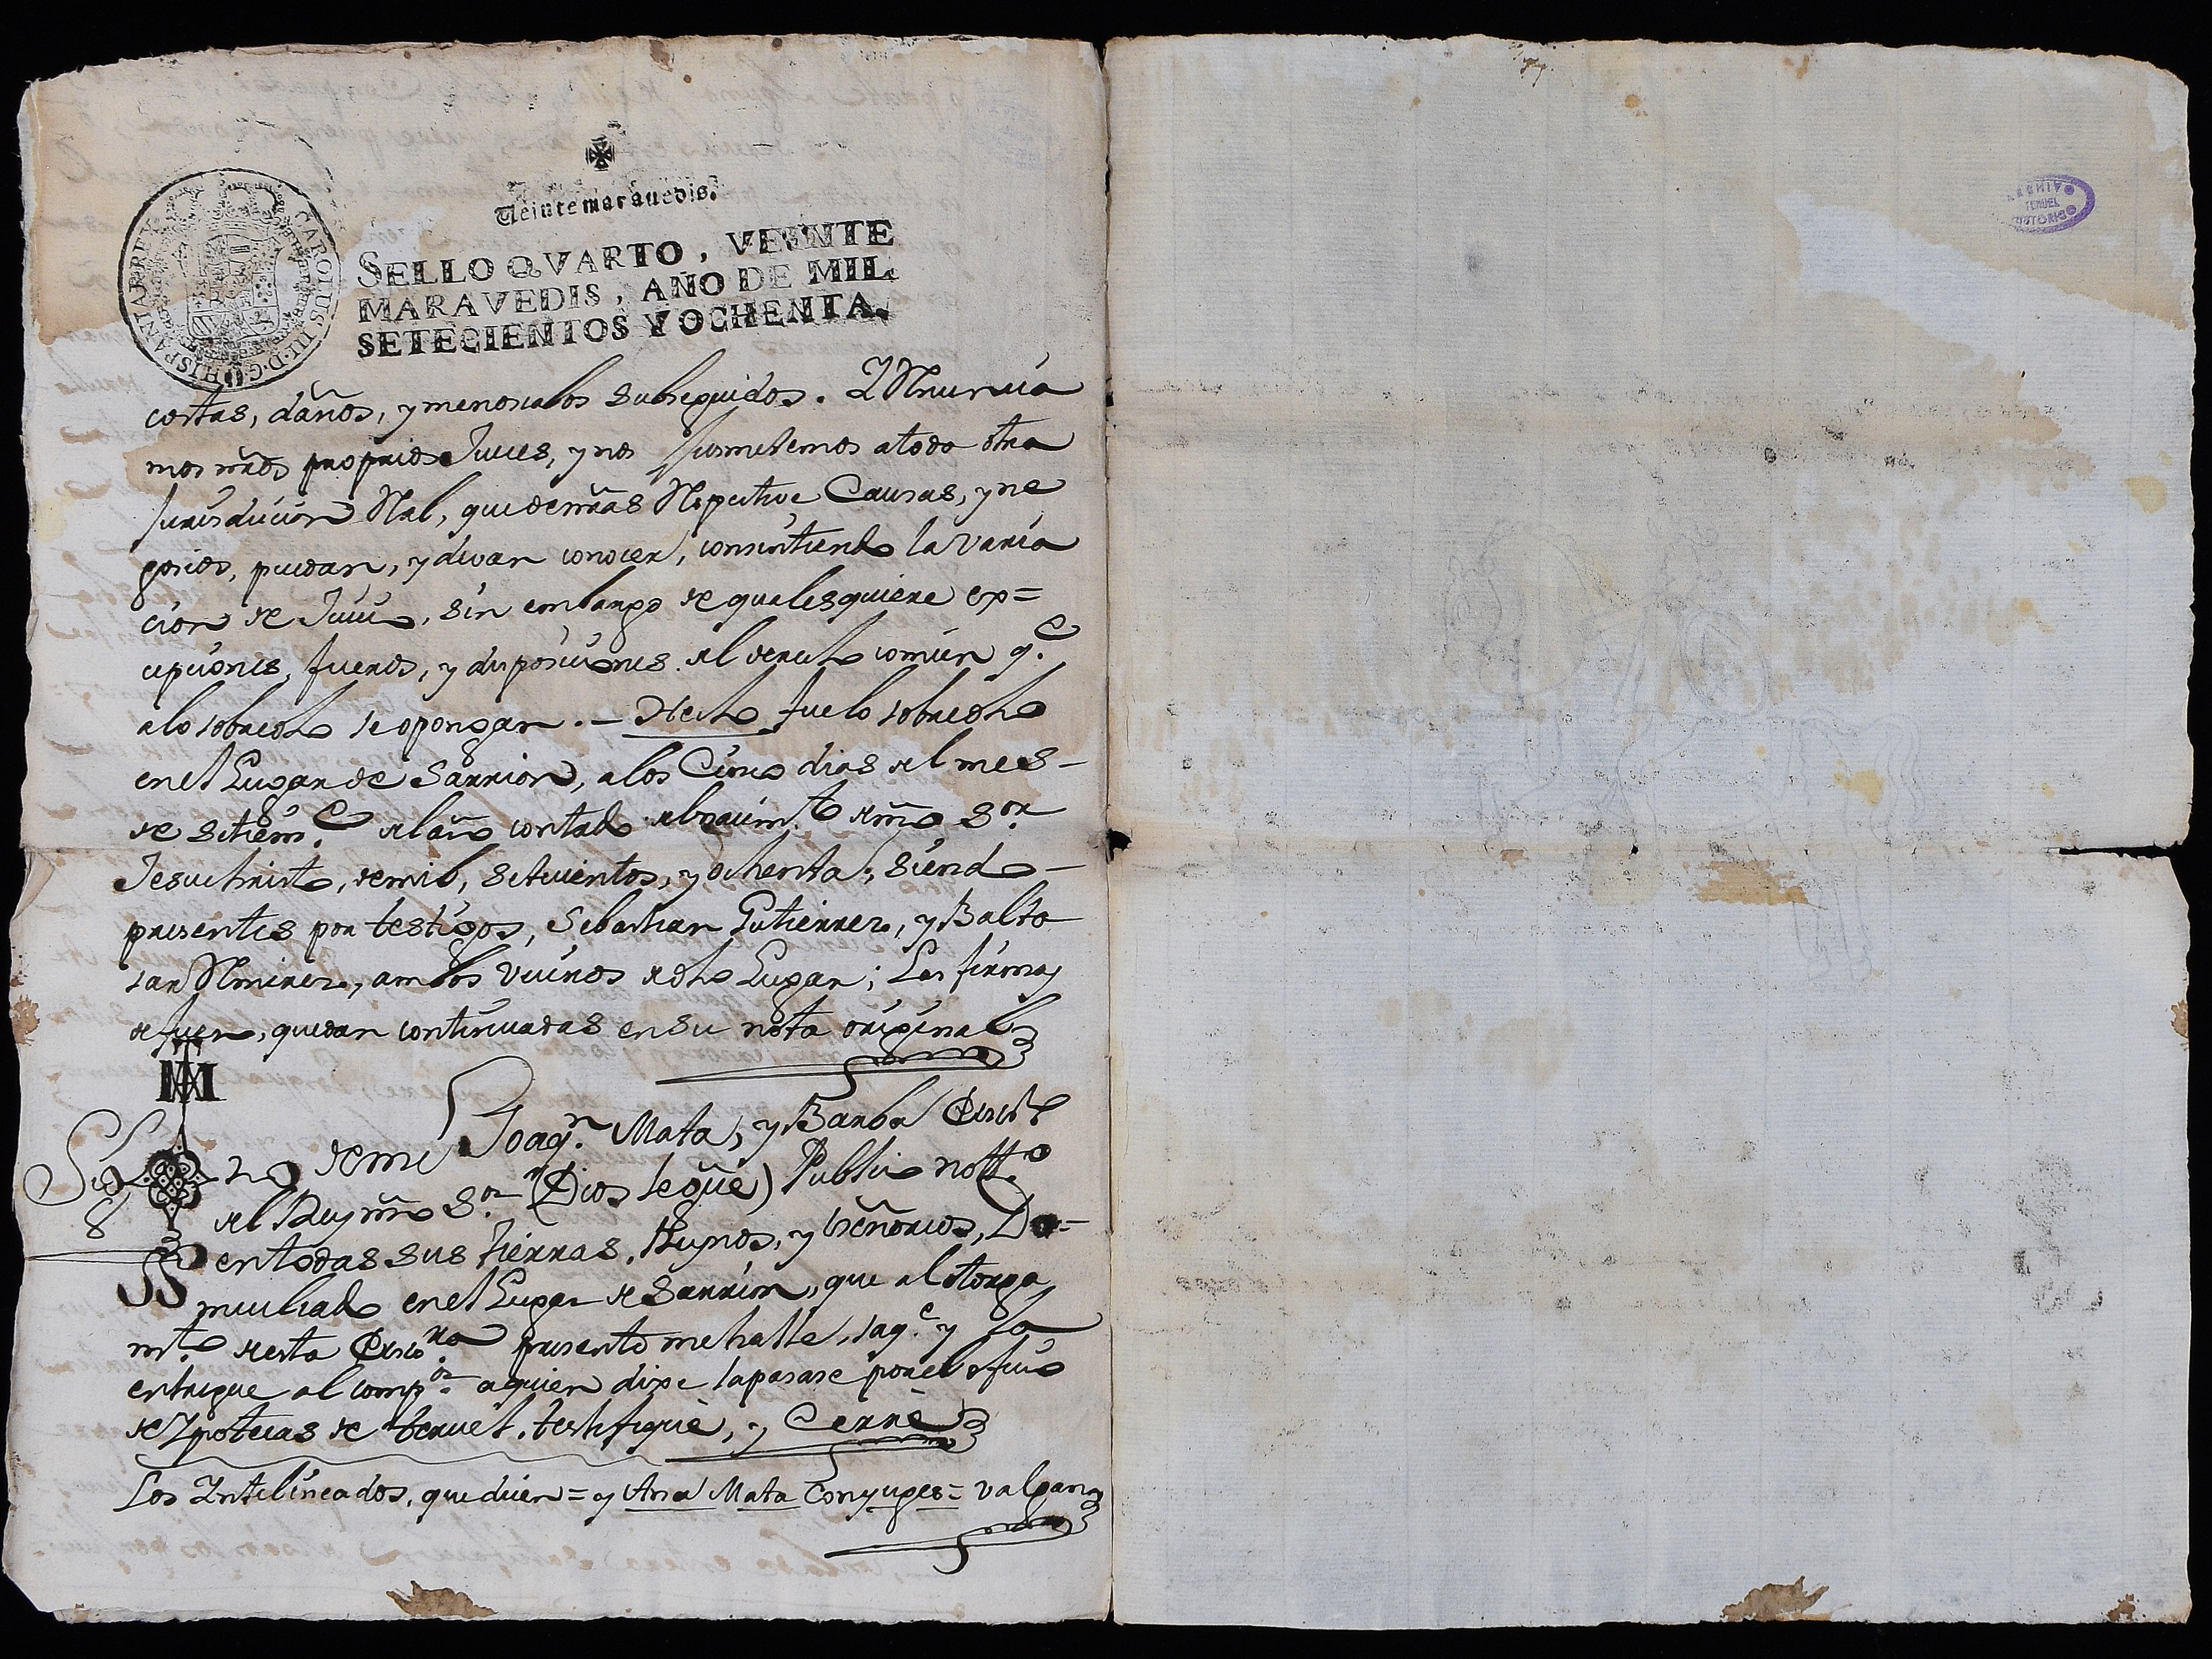 Veinte maravedis.
SELLO QVARTO, VEINTE
MARAVEDIS, AÑO DE MIL
SETECIENTOS Y OCHENTA.
CAROLUS III D.G. HISPANIAR. REX
costas, daños, y menoscabos subseguidos. Y Renuncia
mos nrõs proprios Jueces, y nos sosmetemos a todo otra
Jurisdiccion Real, que de nrãs Respective Causas, y ne
gocios, puedan, y devan conocer, consintiendo la varia
cion de Juicio, sin embargo de qualesquiere ex=
cepciones, fueros, y disposiciones del derecho comun q.e
a lo sobredho se opongan. — Hecho fue lo sobredho
en el Lugar de Sarrion, a los Cinco dias del mes —
de Setiem.e del año contado del nacim.to de nrõ S.or
Jesuchristo, de mil, setecientos, y ochenta; siendo —
presentes por testigos, Sebastian Gutierrez, y Balta
sar Remirez, ambos vecinos de dho Lugar; Las firmas
de fuero, quedan continuadas en su nota original
Sig no de mi Joaq.n Mata, y Barba Escr.
del Rey nrõ S.or (Dios le gũe) Publico nott.o
en todas sus tierras, Reynos, y señorios, Do=
miciliado en el Lugar de Sarrion, que al otorga
m.to de esta Escri.ra presente me halle, saq.e y la
entregue al comp.or a quien dixe la pasase por el oficio
de Ypotecas de Teruel, testifiqué, y Cerré
Los Intelineados, que dicen = y Ana Mata Conyuges = valgan
TERUEL